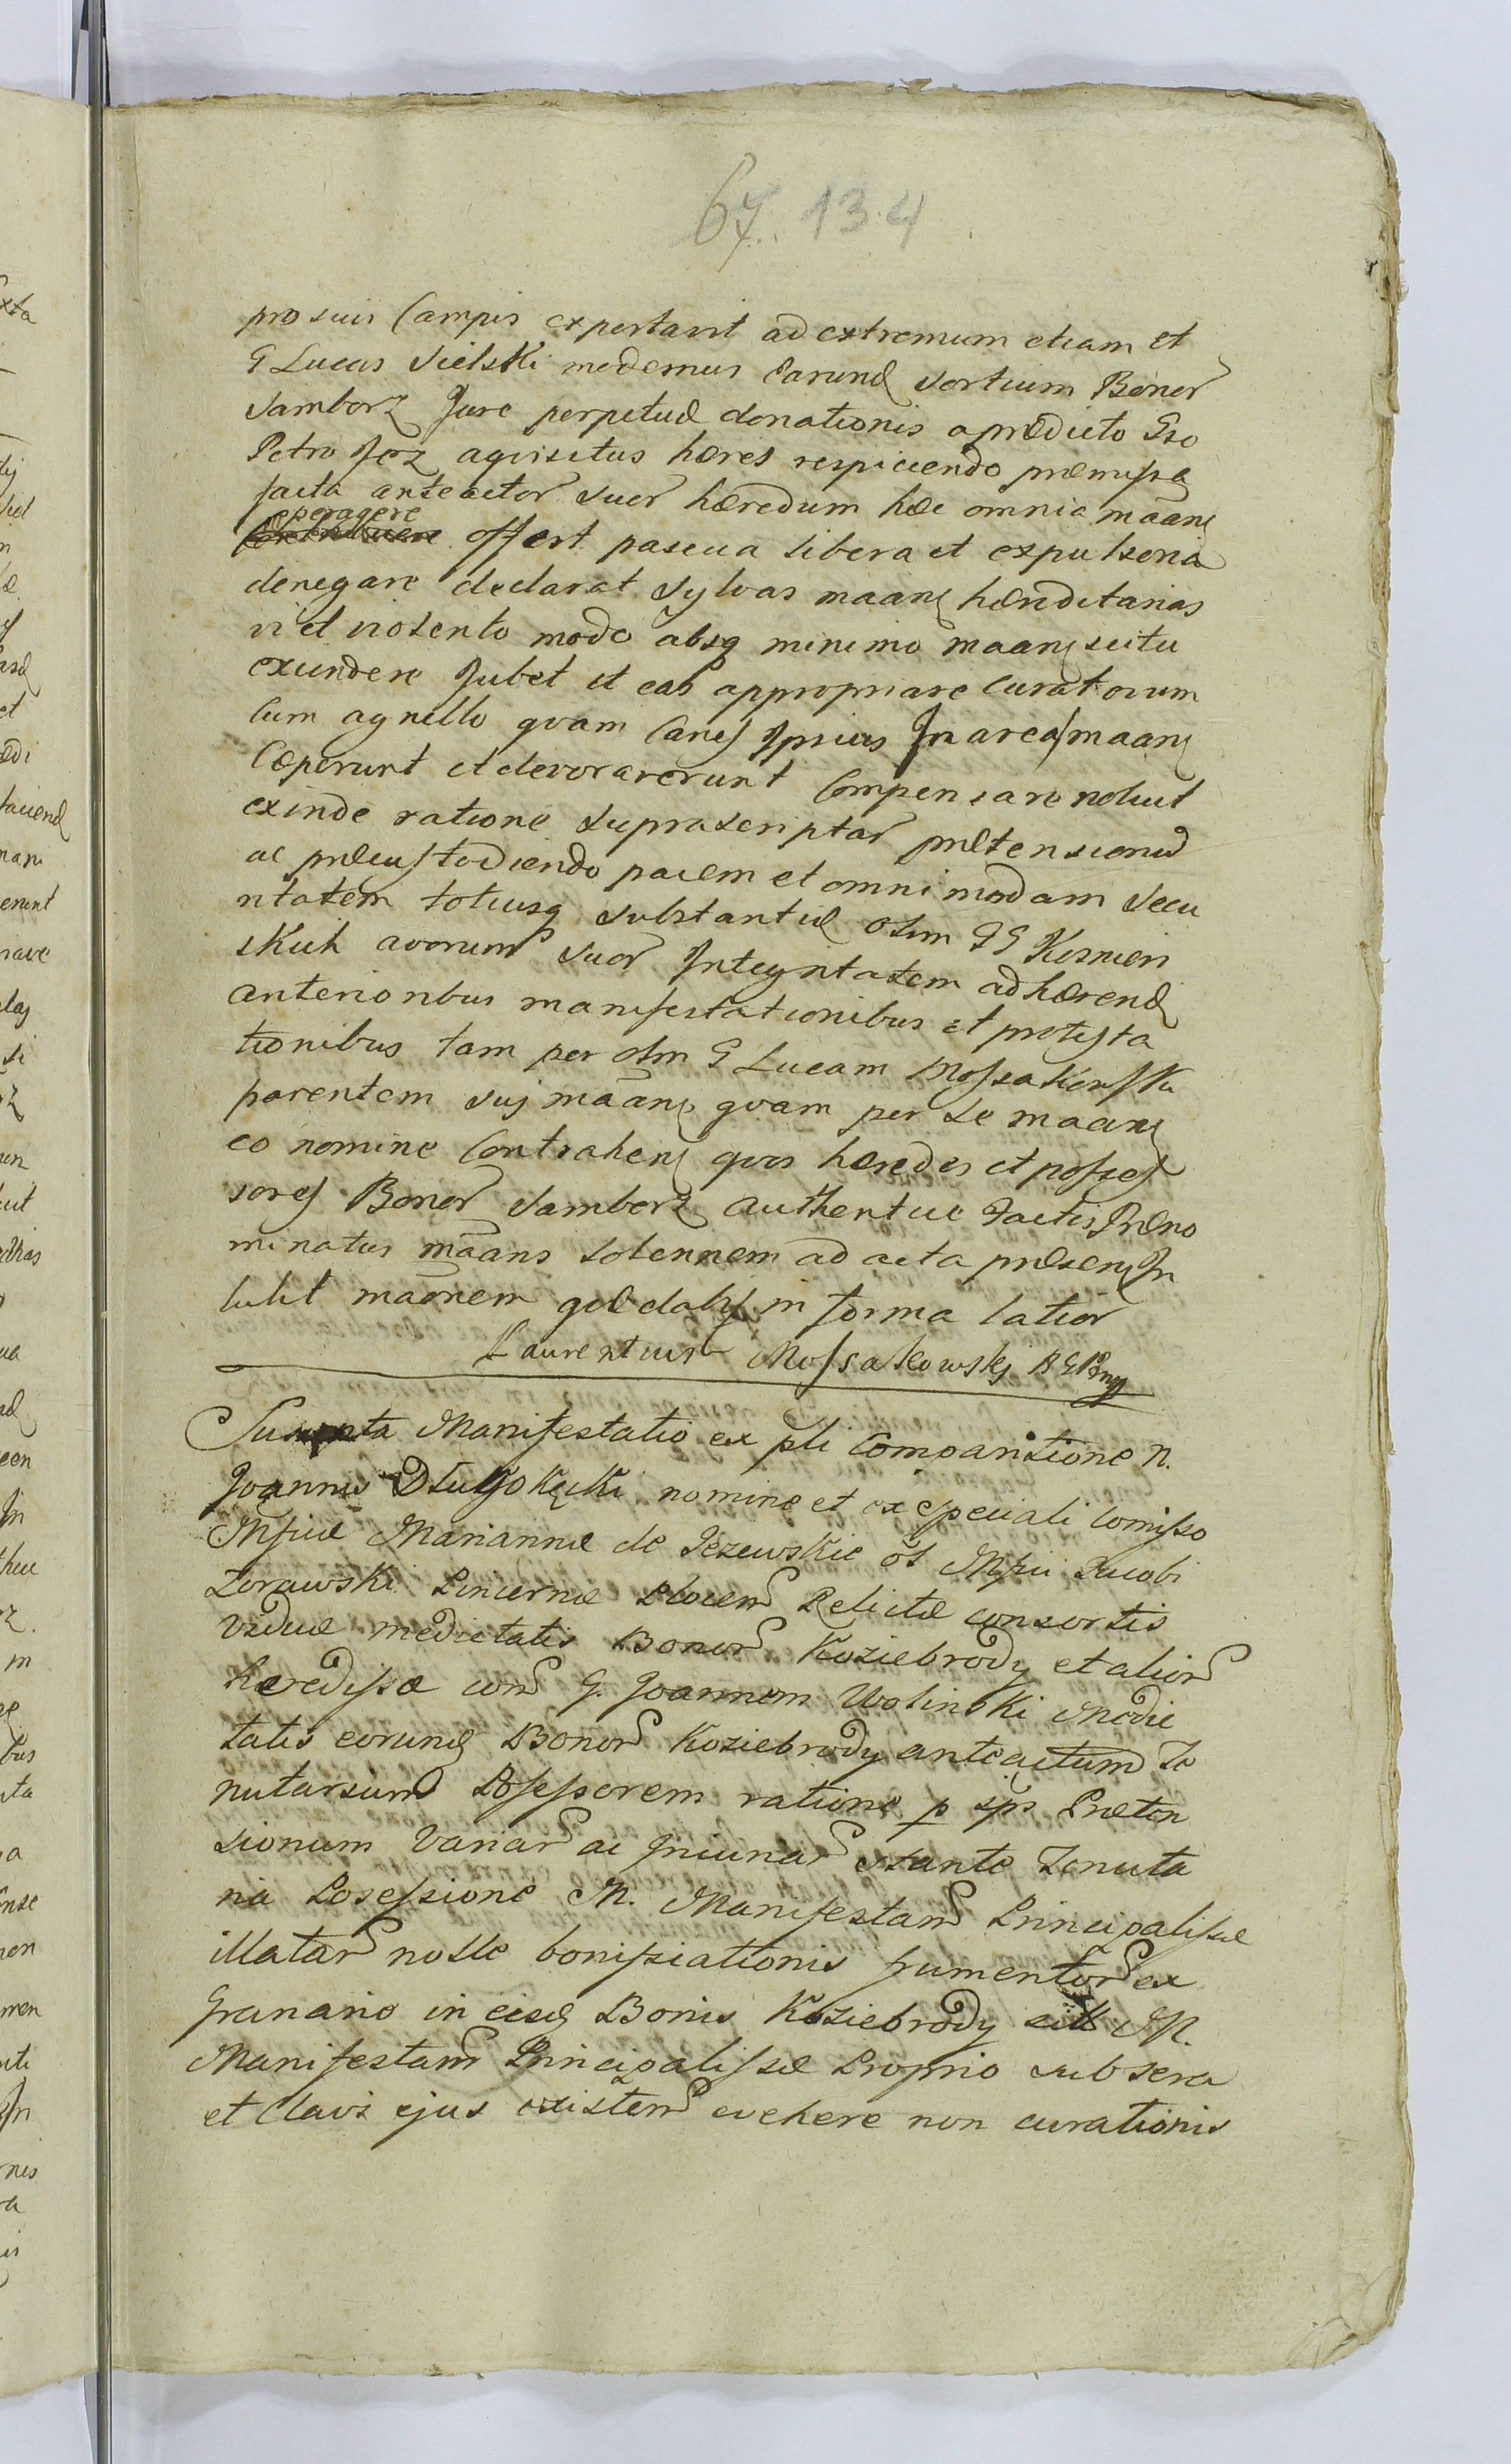 67. 134
pro suis Campis expectavit ad extremum etiam et
G Lucas Sielski modernus Earund Sortium Bonor
Samborz Jure perpetuæ donationis a prædicto Gso
Petro Jerz aqvisitus hæres respiciendo præmissa
facta anteactor suor hæredum hæc omnia maans
peragere
offert pascua libera et expulsoria
denegare declarat Sylvas maans hæreditarias
vi et violento modo absq minimo maans scitu
exundere Jubet et eas appropriare Curat ovium
Cum agnello qvam Canes Ipsius In area maans
Cæperunt et devoraverunt Compensare noluit
exinde ratione suprascriptar prætensionu
ac præcustodiendo pacem et omnimodam Secu
ritatem totiusq substantiæ olim GG Kosmien
skich avorum suor Integritatem adhærend
anterioribus manifestationibus et protesta
tionibus tam per olm G Lucam Mossakowski
parentem sui maans qvam per se maans
eo nomine Contrahens qvos hæredes et posses
sores Bonor Samborz authentice factis Præno
minatus maans solennem ad acta præsens In
tulit maonem qvæ daby in forma latior
Laurentius Mossakowski
Suscepta Manifestatio ex psli Comparitione N.
Joannis Długokęcki nomine et ex speciali Comisso
Mficæ Mariannæ de Jezewskie ol Mfici Jacobi
Zorawski Pincernæ Plocen Relictæ consortis
Viduæ medietatis Bonor Koziebrody et alior
hæredissæ con G. Joannem Wolinski Medie
tatis eorund Bonor Koziebrody anteactum Te
nutarium Possessorem ratione p ips Præten
sionum Variar ac Iniuriar stante Tenuta
ria Possessione M. Manifestan Principalissæ
illatar nolle bonificationis frumentor ex
Granario in eisd Bonis Koziebrody M.
Manifestan Principalissæ Proprio sub sera
et Clavi ejus existen evehere non curationis